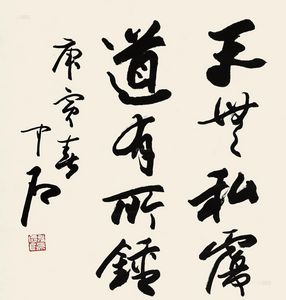 天無私覆
道有所鍾
庚寅春
中石